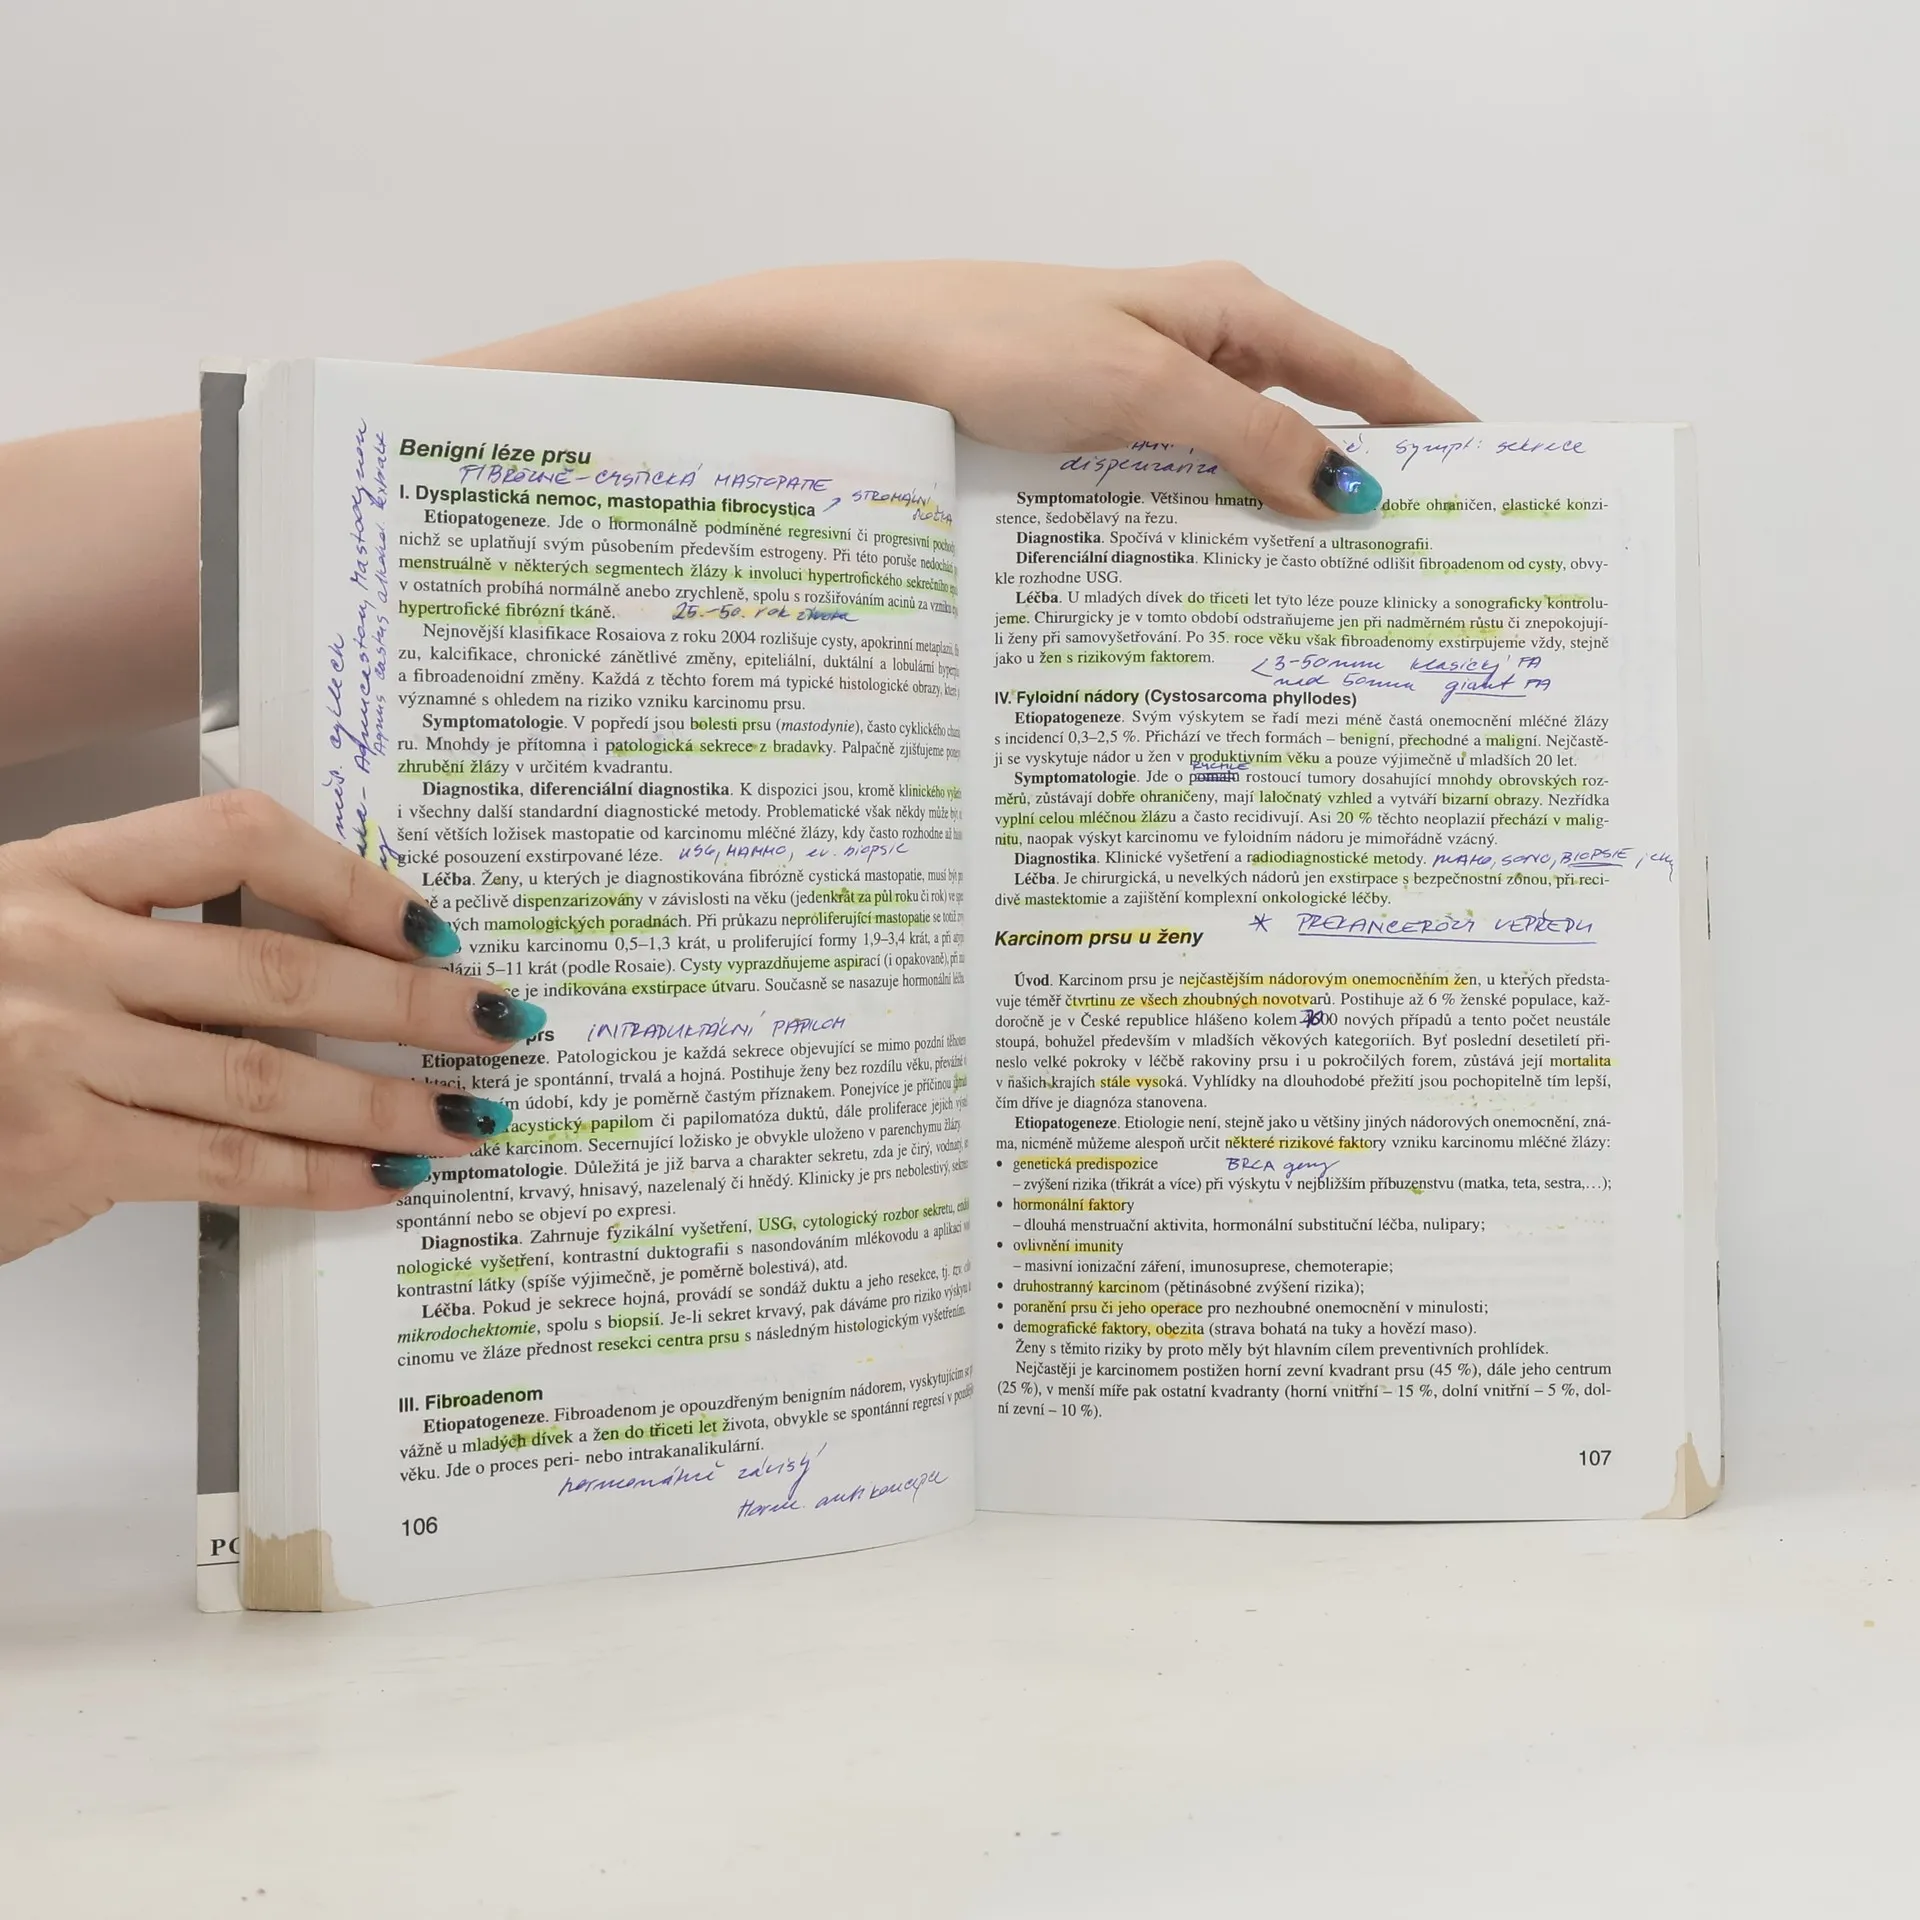 Benigní léze prsu
FIBRÓZNĚ-CYSTICKÁ MASTOPATIE
I. Dysplastická nemoc, mastopathia fibrocystica
STROMÁLNÍ
Etiopatogeneze. Jde o hormonálně podmíněné regresivní či progresivní pochody
nichž se uplatňují svým působením především estrogeny. Při této poruše nedochází
menstruálně v některých segmentech žlázy k involuci hypertrofického sekrečního
v ostatních probíhá normálně anebo zrychleně, spolu s rozšiřováním acinů za vzniku
hypertrofické fibrózní tkáně. 25.-50. rok života
Nejnovější klasifikace Rosaiova z roku 2004 rozlišuje cysty, apokrinní
zu, kalcifikace, chronické zánětlivé změny, epiteliální, duktální a lobulární
a fibroadenoidní změny. Každá z těchto forem má typické histologické obrazy,
významné s ohledem na riziko vzniku karcinomu prsu.
Symptomatologie. V popředí jsou bolesti prsu (mastodynie), často cyklického
ru. Mnohdy je přítomna i patologická sekrece z bradavky. Palpačně zjišťujeme
zhrubění žlázy v určitém kvadrantu.
Diagnostika, diferenciální diagnostika. K dispozici jsou, kromě klinického
i všechny další standardní diagnostické metody. Problematické však někdy může být
šení větších ložisek mastopatie od karcinomu mléčné žlázy, kdy často rozhodne až
gické posouzení exstirpované léze. USG, MAMMO, ev. biopsie
Léčba. Ženy, u kterých je diagnostikována fibrózně cystická mastopatie, musí být
ě a pečlivě dispenzarizovány v závislosti na věku (jedenkrát za půl roku či rok) ve
ých mamologických poradnách. Při průkazu neproliferující mastopatie se totiž
vzniku karcinomu 0,5–1,3 krát, u proliferující formy 1,9–3,4 krát, a při
lázii 5–11 krát (podle Rosaie). Cysty vyprazdňujeme aspirací (i opakovaně), při
ce je indikována exstirpace útvaru. Současně se nasazuje hormonální léčba
prs INTRADUKTÁLNÍ PAPILOM
Etiopatogeneze. Patologickou je každá sekrece objevující se mimo pozdní
ktaci, která je spontánní, trvalá a hojná. Postihuje ženy bez rozdílu věku, převážně
ím údobí, kdy je poměrně častým příznakem. Ponejvíce je příčinou
racystický papilom či papilomatóza duktů, dále proliferace jejich
také karcinom. Secernující ložisko je obvykle uloženo v parenchymu žlázy.
Symptomatologie. Důležitá je již barva a charakter sekretu, zda je čirý, vodnatý,
sanquinolentní, krvavý, hnisavý, nazelenalý či hnědý. Klinicky je prs nebolestivý,
spontánní nebo se objeví po expresi.
Diagnostika. Zahrnuje fyzikální vyšetření, USG, cytologický rozbor sekretu,
nologické vyšetření, kontrastní duktografii s nasondováním mlékovodu a aplikací
kontrastní látky (spíše výjimečně, je poměrně bolestivá), atd.
Léčba. Pokud je sekrece hojná, provádí se sondáž duktu a jeho resekce, tj.
mikrodochektomie, spolu s biopsií. Je-li sekret krvavý, pak dáváme pro riziko výskytu
cinomu ve žláze přednost resekci centra prsu s následným histologickým vyšetřením.
III. Fibroadenom
Etiopatogeneze. Fibroadenom je opouzdřeným benigním nádorem, vyskytujícím se
vážně u mladých dívek a žen do třiceti let života, obvykle se spontánní regresí v
věku. Jde o proces peri- nebo intrakanalikulární.
hormonálně závislý
Horm. antikoncepce
106
cyklech
Agnucaston, Mastodynon
Agnus castus alkohol. extrakt
PO
sympt: sekrece
dispenzariza
Symptomatologie. Většinou hmatný dobře ohraničen, elastické konzi-
stence, šedobělavý na řezu.
Diagnostika. Spočívá v klinickém vyšetření a ultrasonografii.
Diferenciální diagnostika. Klinicky je často obtížné odlišit fibroadenom od cysty, obvy-
kle rozhodne USG.
Léčba. U mladých dívek do třiceti let tyto léze pouze klinicky a sonograficky kontrolu-
jeme. Chirurgicky je v tomto období odstraňujeme jen při nadměrném růstu či znepokojují-
li ženy při samovyšetřování. Po 35. roce věku však fibroadenomy exstirpujeme vždy, stejně
jako u žen s rizikovým faktorem.
< 3-50mm klasický FA
nad 50mm giant FA
IV. Fyloidní nádory (Cystosarcoma phyllodes)
Etiopatogeneze. Svým výskytem se řadí mezi méně častá onemocnění mléčné žlázy
s incidencí 0,3–2,5 %. Přichází ve třech formách – benigní, přechodné a maligní. Nejčastě-
ji se vyskytuje nádor u žen v produktivním věku a pouze výjimečně u mladších 20 let.
RYCHLE
Symptomatologie. Jde o pomalu rostoucí tumory dosahující mnohdy obrovských roz-
měrů, zůstávají dobře ohraničeny, mají laločnatý vzhled a vytváří bizarní obrazy. Nezřídka
vyplní celou mléčnou žlázu a často recidivují. Asi 20 % těchto neoplazií přechází v malig-
nitu, naopak výskyt karcinomu ve fyloidním nádoru je mimořádně vzácný.
Diagnostika. Klinické vyšetření a radiodiagnostické metody. MAMO, SONO, BIOPSIE
Léčba. Je chirurgická, u nevelkých nádorů jen exstirpace s bezpečnostní zónou, při reci-
divě mastektomie a zajištění komplexní onkologické léčby.
* PREKANCERÓZY VEPŘEDU
Karcinom prsu u ženy
Úvod. Karcinom prsu je nejčastějším nádorovým onemocněním žen, u kterých předsta-
vuje téměř čtvrtinu ze všech zhoubných novotvarů. Postihuje až 6 % ženské populace, kaž-
doročně je v České republice hlášeno kolem 00 nových případů a tento počet neustále
stoupá, bohužel především v mladších věkových kategoriích. Byť poslední desetiletí při-
neslo velké pokroky v léčbě rakoviny prsu i u pokročilých forem, zůstává její mortalita
v našich krajích stále vysoká. Vyhlídky na dlouhodobé přežití jsou pochopitelně tím lepší,
čím dříve je diagnóza stanovena.
Etiopatogeneze. Etiologie není, stejně jako u většiny jiných nádorových onemocnění, zná-
ma, nicméně můžeme alespoň určit některé rizikové faktory vzniku karcinomu mléčné žlázy:
• genetická predispozice BRCA geny
– zvýšení rizika (třikrát a více) při výskytu v nejbližším příbuzenstvu (matka, teta, sestra,…);
• hormonální faktory
– dlouhá menstruační aktivita, hormonální substituční léčba, nulipary;
• ovlivnění imunity
– masivní ionizační záření, imunosuprese, chemoterapie;
• druhostranný karcinom (pětinásobné zvýšení rizika);
• poranění prsu či jeho operace pro nezhoubné onemocnění v minulosti;
• demografické faktory, obezita (strava bohatá na tuky a hovězí maso).
Ženy s těmito riziky by proto měly být hlavním cílem preventivních prohlídek.
Nejčastěji je karcinomem postižen horní zevní kvadrant prsu (45 %), dále jeho centrum
(25 %), v menší míře pak ostatní kvadranty (horní vnitřní – 15 %, dolní vnitřní – 5 %, dol-
ní zevní – 10 %).
107